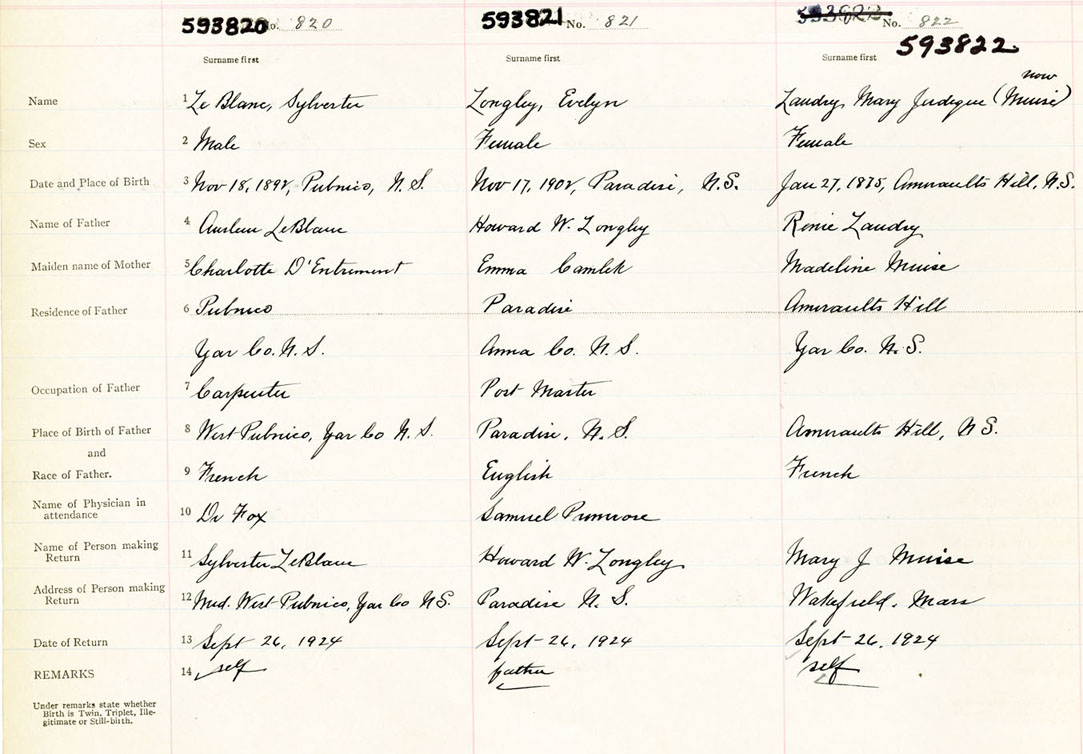 593820 No. 820 593821 No. 821 No. 822
593822
Surname first Surname first Surname first
now
Name 1 Le Blanc, Sylvester Longley, Evelyn Landry, Mary Judeque (Muise)
Sex 2 Male Female Female
Date and Place of Birth 3 Nov 18, 1892, Pubnico, N.S. Nov 17, 1902, Paradise, N.S. Jan 27, 1875, Amiraults Hill, N.S.
Name of Father 4 LeBlanc Howard W. Longley Remie Landry
Maiden name of Mother 5 Charlotte D'Entremont Emma Madeline Muise
Residence of Father 6 Pubnico Paradise Amiraults Hill
Yar Co. N.S. Anna Co. N.S. Yar Co. N.S.
Occupation of Father 7 Carpenter Post Master
Place of Birth of Father 8 West Pubnico, Yar Co N.S. Paradise, N.S. Amiraults Hill, N.S.
and
Race of Father. 9 French English French
Name of Physician in
attendance 10 Dr Fox Samuel Primrose
Name of Person making
Return 11 Sylvester LeBlanc Howard W. Longley Mary J Muise
Address of Person making
Return 12 Mid. West Pubnico, Yar Co N.S. Paradise N.S. Wakefield, Mass
Date of Return 13 Sept 26, 1924 Sept 26, 1924 Sept 26, 1924
REMARKS 14 self father self
Under remarks state whether
Birth is Twin, Triplet, Ille-
gitimate or Still-birth.